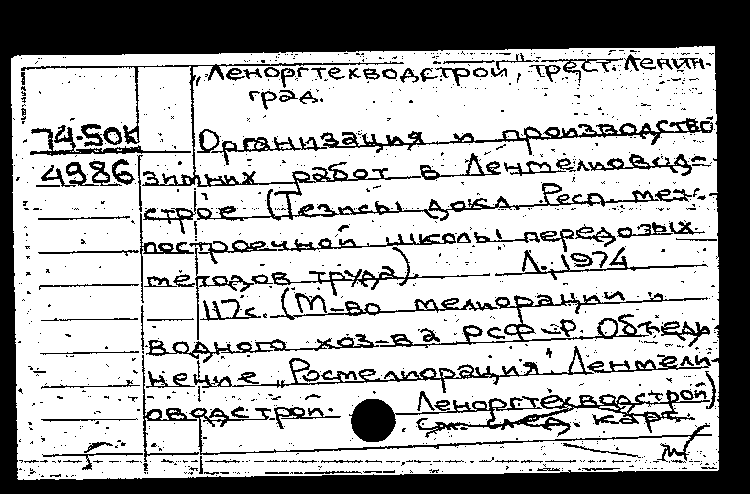 „Леноргтехводстрой", трест. Ленин-
град.
74-50к Организация и производство
4986 зимних работ в Ленмелиовод-
строе (Тезисы докл. Респ. меж-
построечной школы передовых
методов труда). Л., 1974.
117с. (М-во мелиорации и
водного хоз-ва РСФСР. Объеди-
нение „Росмелиорация". Ленмели-
оводстрой. Леноргтехводстрой)
см. след. карт.